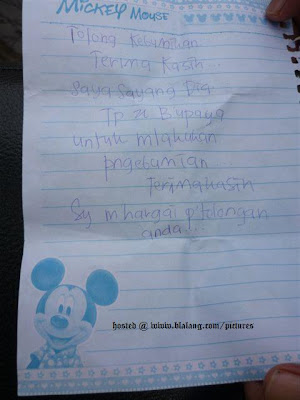 MICKEY MOUSE
Tolong Kebumikan
Terima Kasih...
Saya Sayang Dia
Tp x Bupaya
untuk mlakukan
pngebumian
Terima kasih
Sy mhargai ptolongan
anda...
hosted @ www.blalang.com/pictures